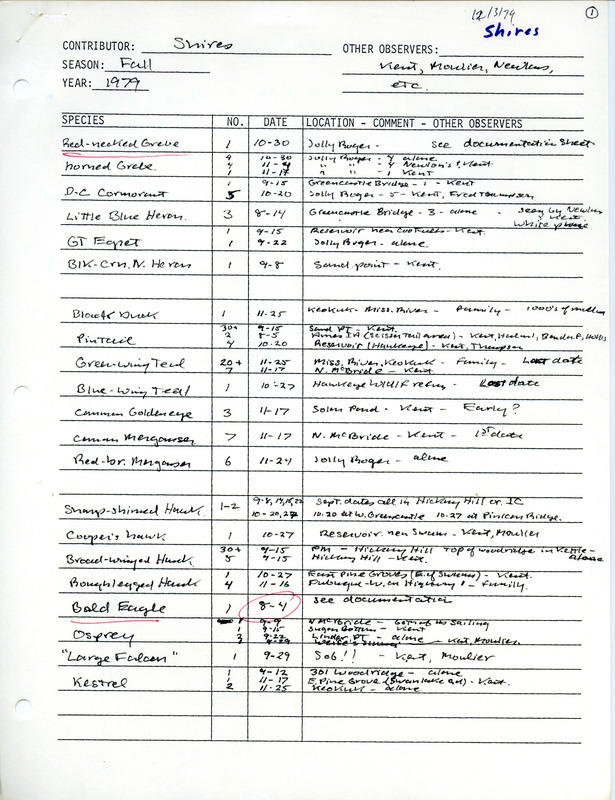 12/3/79
Shires
1
CONTRIBUTOR: Shires OTHER OBSERVERS:
SEASON: Fall Kent, Moulier, Newlins,
YEAR: 1979 etc.
SPECIES NO. DATE LOCATION - COMMENT - OTHER OBSERVERS
Red-necked Grebe 1 10-30 Jolly Roger - See documentation sheet
Horned Grebe. 4 10-30 Jolly Roger - 4 alone
4 11-4 " " - 4 Kent
1 11-17 " " - 1 Kent
1 9-15 Greencastle Bridge - 1 - Kent
D-C Cormorant 5 10-20 Jolly Roger - 5 - Kent, Fred Thompson
Little Blue Heron. 3 8-14 Greencastle Bridge - 3 - alone - seen by Newlins & Kent. White phase
1 9-15 Reservoir near - Kent.
GT Egret 1 9-22 Jolly Roger - alone.
Blk-Crn. N. Heron 1 9-8 Sand point - Kent.
Duck 1 11-25 Keokuk - Miss. River - Family - 1000's of
30+ 9-15 Sand PT - Kent
Pintail 2 8-5 - Kent,
4 10-20 Reservoir (Hawkeye) - Kent, Thompson
Green-wing Teal 20+ 11-25 Miss. River, Keokuk - Family - Last date
7 11-17 N. McBride - Kent
Blue-wing Teal 1 10-27 Hawkeye Wildlf refuge - Last date
Common Goldeneye 3 11-17 Solon Pond - Kent - Early?
Common Merganser 7 11-17 N. McBride - Kent - 1st date
Red-br. Merganser 6 11-24 Jolly Roger - alone
Sharp-shinned Hawk 1-2 9-8, 14, 15, 22 Sept. dates all in Hickory Hill or IC
10-20, 27 10.20 at W. Greencastle 10.27 at Pinicon Ridge.
Cooper's hawk 1 10-27 Reservoir near Swan - Kent, Moulier
30+ 9-15 PM - Hickory Hill top of woodridge in Kettle - alone
Broad-winged Hawk 5 9-15 Hickory Hill - Kent.
1 10-27 East Pine Grove (E. of Swan) - Kent.
Roughlegged Hawk 4 11-16 Dubuque - W. on Highway - Family.
Bald Eagle 1 8-4 See documentation
1 9-9 N McBride - Sailing
Osprey 1 9-15 Bottom - Kent
1 9-22 Linder PT - alone
9-29 - Kent, Moulier
"Large Falcon" 1 9-29 Sob!! - Kent, Moulier
1 9-12 301 Woodridge - alone
Kestrel 1 11-17 E. Pine Grove (Swan lake rd) - Kent.
2 11-25 Keokuk - alone